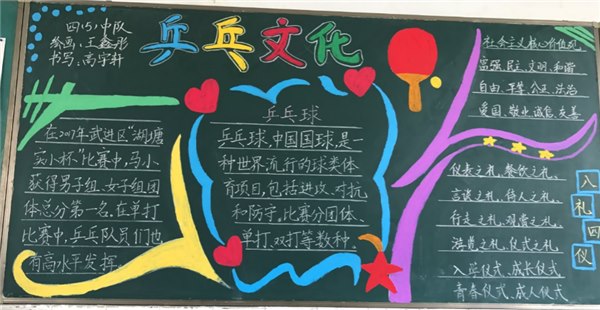 四(5)中队
绘画:王鑫彤
书写:高宇轩
乒乓文化
在2017年武进区“湖塘
实小杯”比赛中,马小
获得男子组、女子组团
体总分第一名,在单打
比赛中,乒乓队员们也
有高水平发挥。
乒乓球
乒乓球,中国国球,是一
种世界流行的球类体
育项目,包括进攻、对抗
和防守,比赛分团体、
单打、双打等数种。
社会主义核心价值观
富强、民主、文明、和谐
自由、平等、公正、法治
爱国、敬业、诚信、友善
仪表之礼、餐饮之礼、
言谈之礼、待人之礼、
行走之礼、观赏之礼、
游览之礼、仪式之礼、
入学仪式、成长仪式
青春仪式、成人仪式
八
礼
四
仪